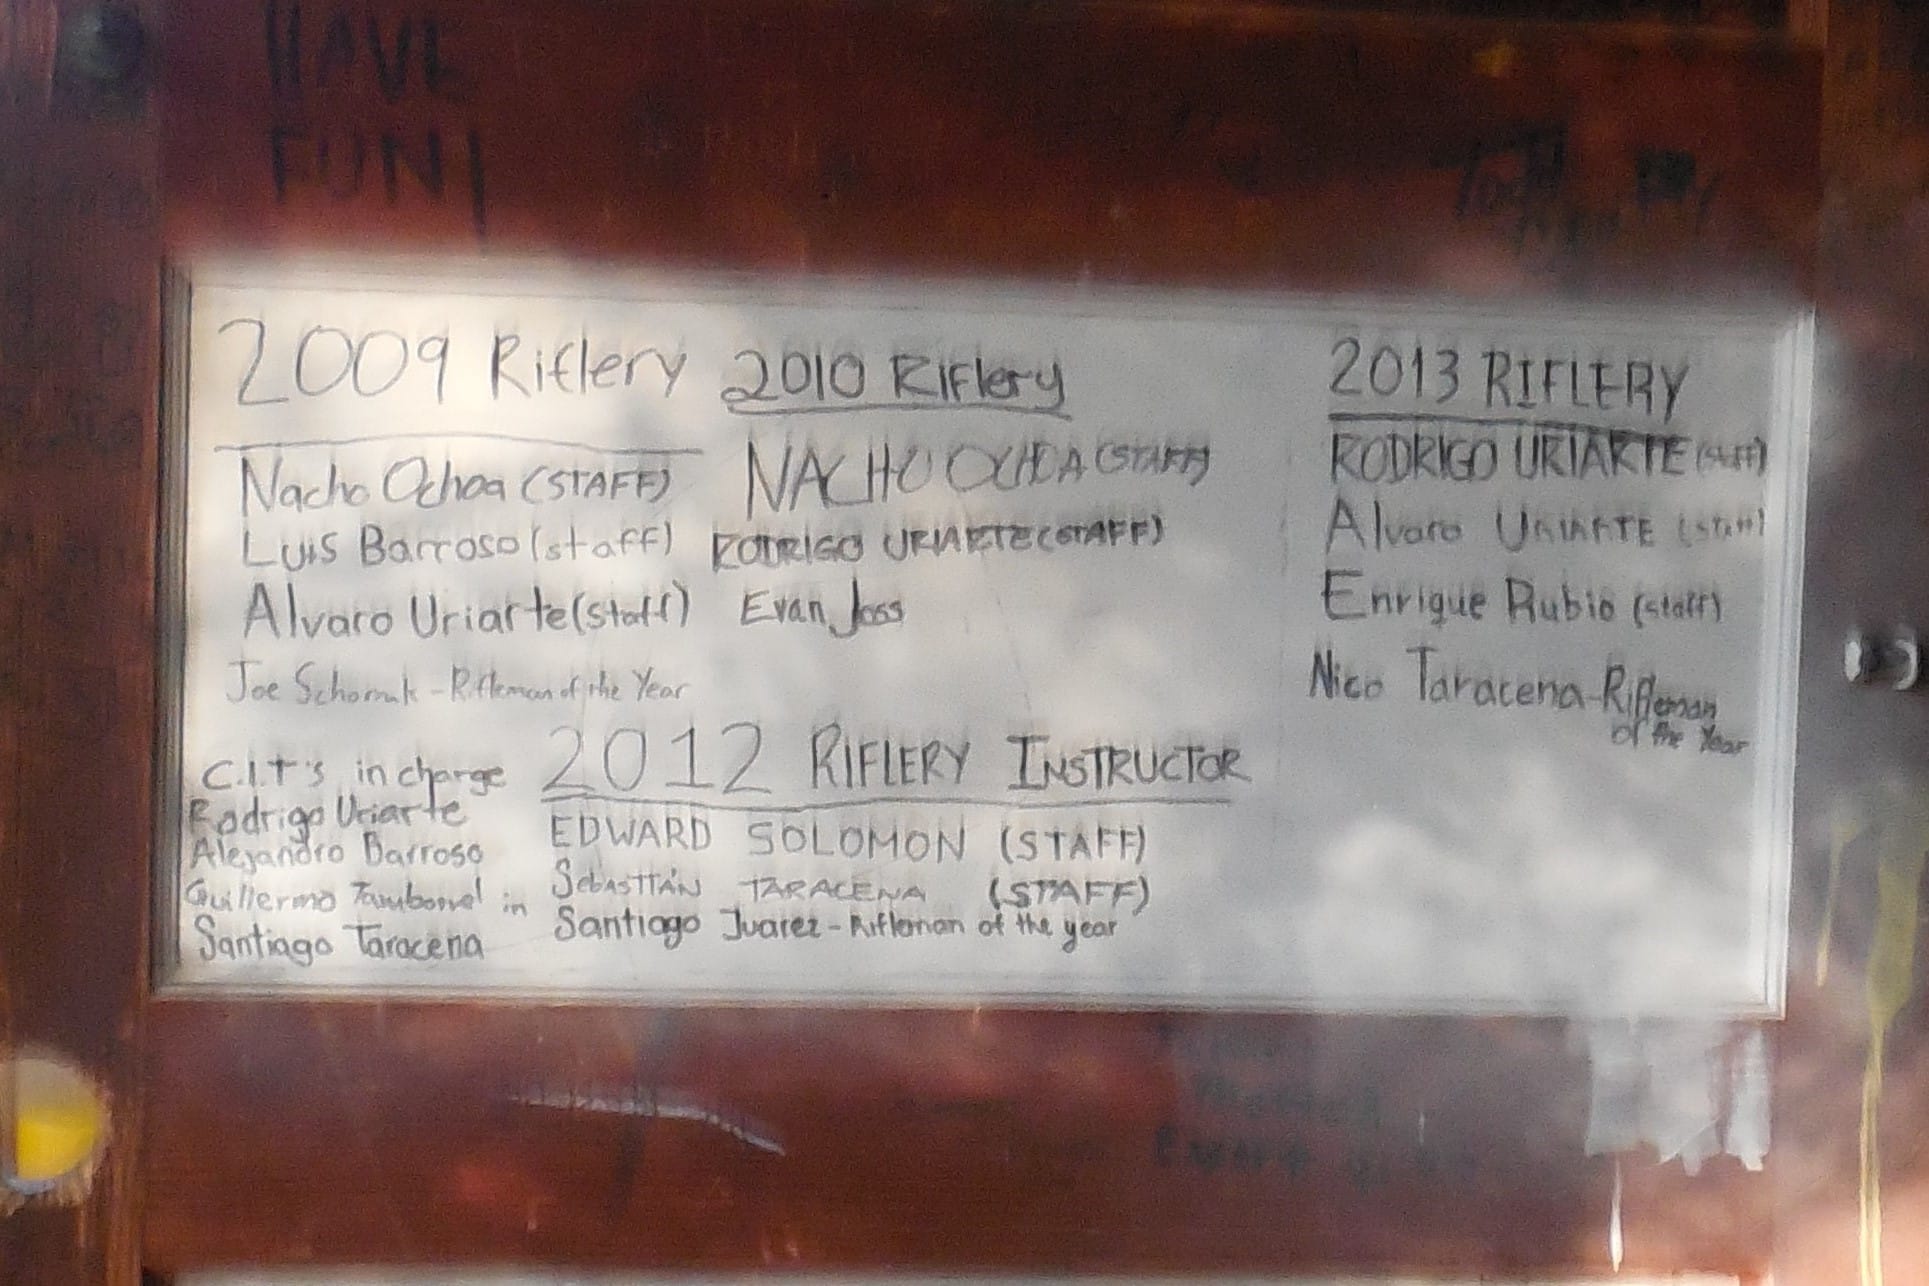 HAVE
FUN!
2009 Riflery
Nacho Ochoa (STAFF)
Luis Barroso (staff)
Alvaro Uriarte (staff)
Joe - Rifleman of the Year
C.I.T's in charge
Rodrigo Uriarte
Alejandro Barroso
Guillermo in
Santiago Taracena
2010 Riflery
NACHO OCHOA (STAFF)
RODRIGO URIARTE (STAFF)
Evan Joss
2012 RIFLERY INSTRUCTOR
EDWARD SOLOMON (STAFF)
SEBASTIÁN TARACENA (STAFF)
Santiago Juarez - Rifleman of the year
2013 RIFLERY
RODRIGO URIARTE (staff)
Alvaro URIARTE (staff)
Enrique Rubio (staff)
Nico Taracena - Rifleman
of the Year